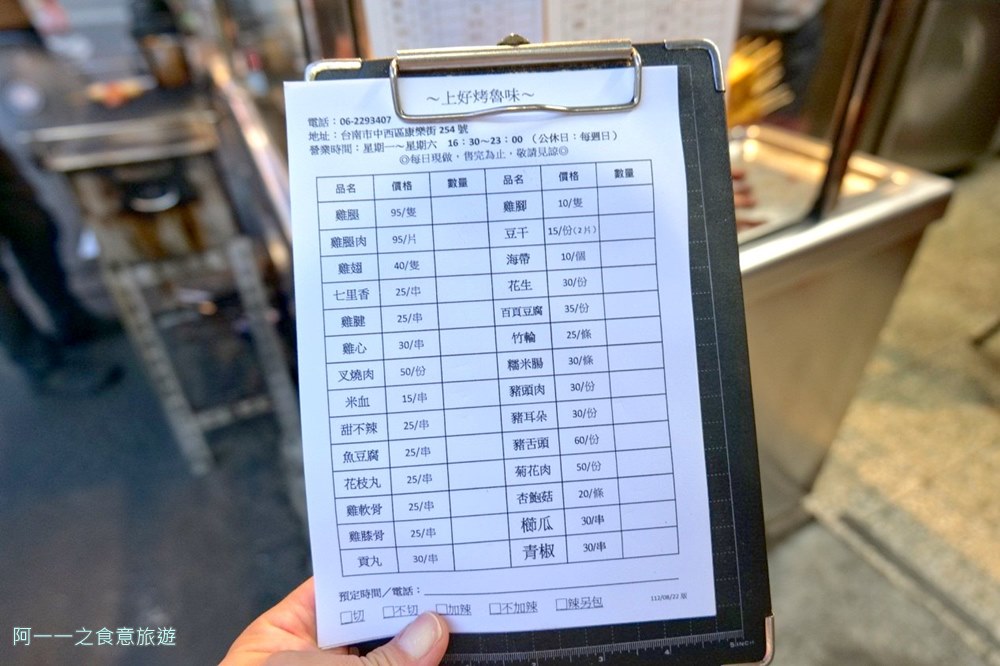 ～上好烤魯味～
電話：06-2293407
地址：台南市中西區康樂街 254 號
營業時間：星期一～星期六 16：30～23：00 （公休日：每週日）
◎每日現做，售完為止，敬請見諒◎
品名 價格 數量 品名 價格 數量
雞腿 95/隻 雞腳 10/隻
雞腿肉 95/片 豆干 15/份(2片)
雞翅 40/隻 海帶 10/個
七里香 25/串 花生 30/份
雞腱 25/串 百頁豆腐 35/份
雞心 30/串 竹輪 25/條
叉燒肉 50/份 糯米腸 30/條
米血 15/串 豬頭肉 30/份
甜不辣 25/串 豬耳朵 30/份
魚豆腐 25/串 豬舌頭 60/份
花枝丸 25/串 菊花肉 50/份
雞軟骨 25/串 杏鮑菇 20/條
雞膝骨 25/串 櫛瓜 30/串
貢丸 30/串 青椒 30/串
預定時間／電話：
□切 □不切 □加辣 □不加辣 □辣另包
112/08/22 版
阿一一之食意旅遊